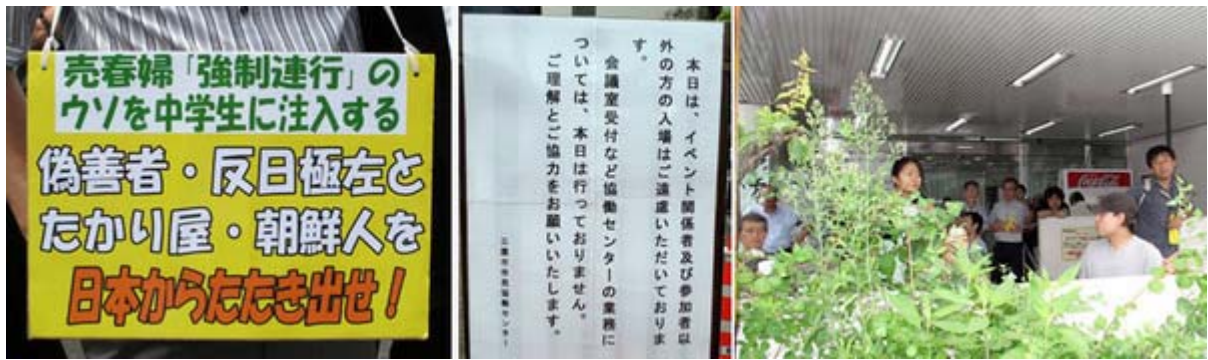 売春婦「強制連行」の
ウソを中学生に注入する
偽善者・反日極左と
たかり屋・朝鮮人を
日本からたたき出せ！
本日は、イベント関係者及び参加者以
外の方の入場はご遠慮いただいておりま
す。
会議室受付など協働センターの業務に
ついては、本日は行っておりません。
ご理解とご協力をお願いいたします。
三鷹市市民協働センター
Coca-Cola